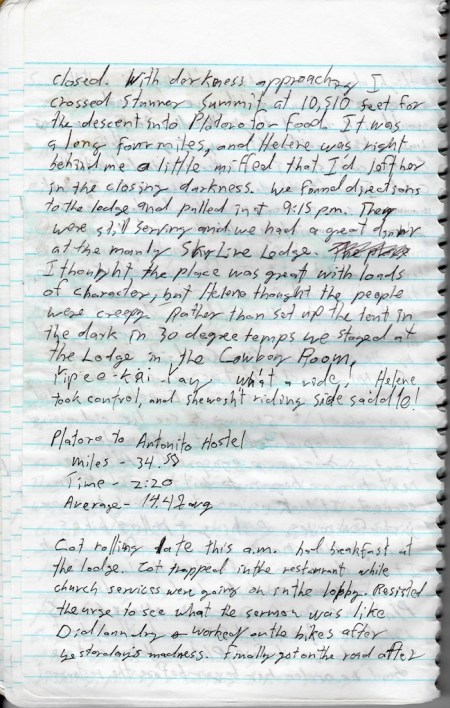 closed. With darkness approaching I
crossed Stunner Summit at 10,510 feet for
the descent into Platoro for food. It was
a long four miles, and Helene was right
behind me a little miffed that I'd left her
in the closing darkness. We found directions
to the lodge and pulled in at 9:15 pm. They
were still serving and we had a great dinner
at the manly SkyLine Lodge.
I thought the place was great with loads
of character, but Helene thought the people
were creepy. Rather than set up the tent in
the dark in 30 degree temps we stayed at
the Lodge in the Cowboy Room,
Yipee-kai-yay what a ride! Helene
took control, and she wasn't riding side saddle!
Platoro to Antonito Hostel
miles - 34.58
Time - 2:20
Average - 14.42 avg
Got rolling late this a.m. had breakfast at
the lodge. Got trapped in the restaurant while
church services were going on in the lobby. Resisted
the urge to see what the sermon was like
Did laundry & worked on the bikes after
yesterday's madness. Finally got on the road after